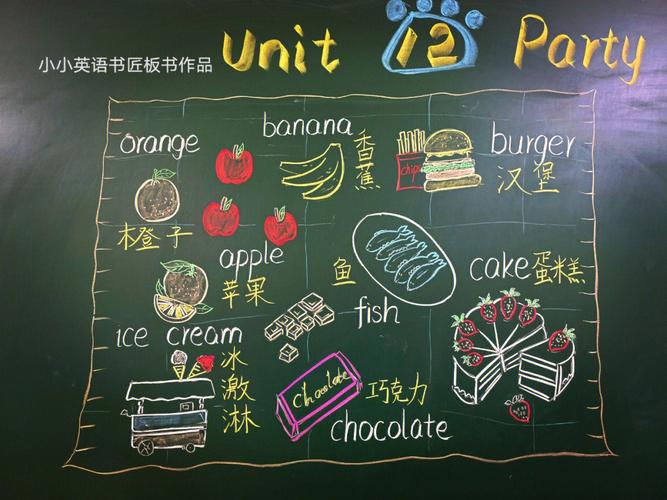 小小英语书匠板书作品
Unit 12 Party
orange
橙子
banana
香蕉
chips
burger
汉堡
apple
苹果
鱼
fish
cake 蛋糕
ice cream
冰激淋
Chocolate
巧克力
chocolate